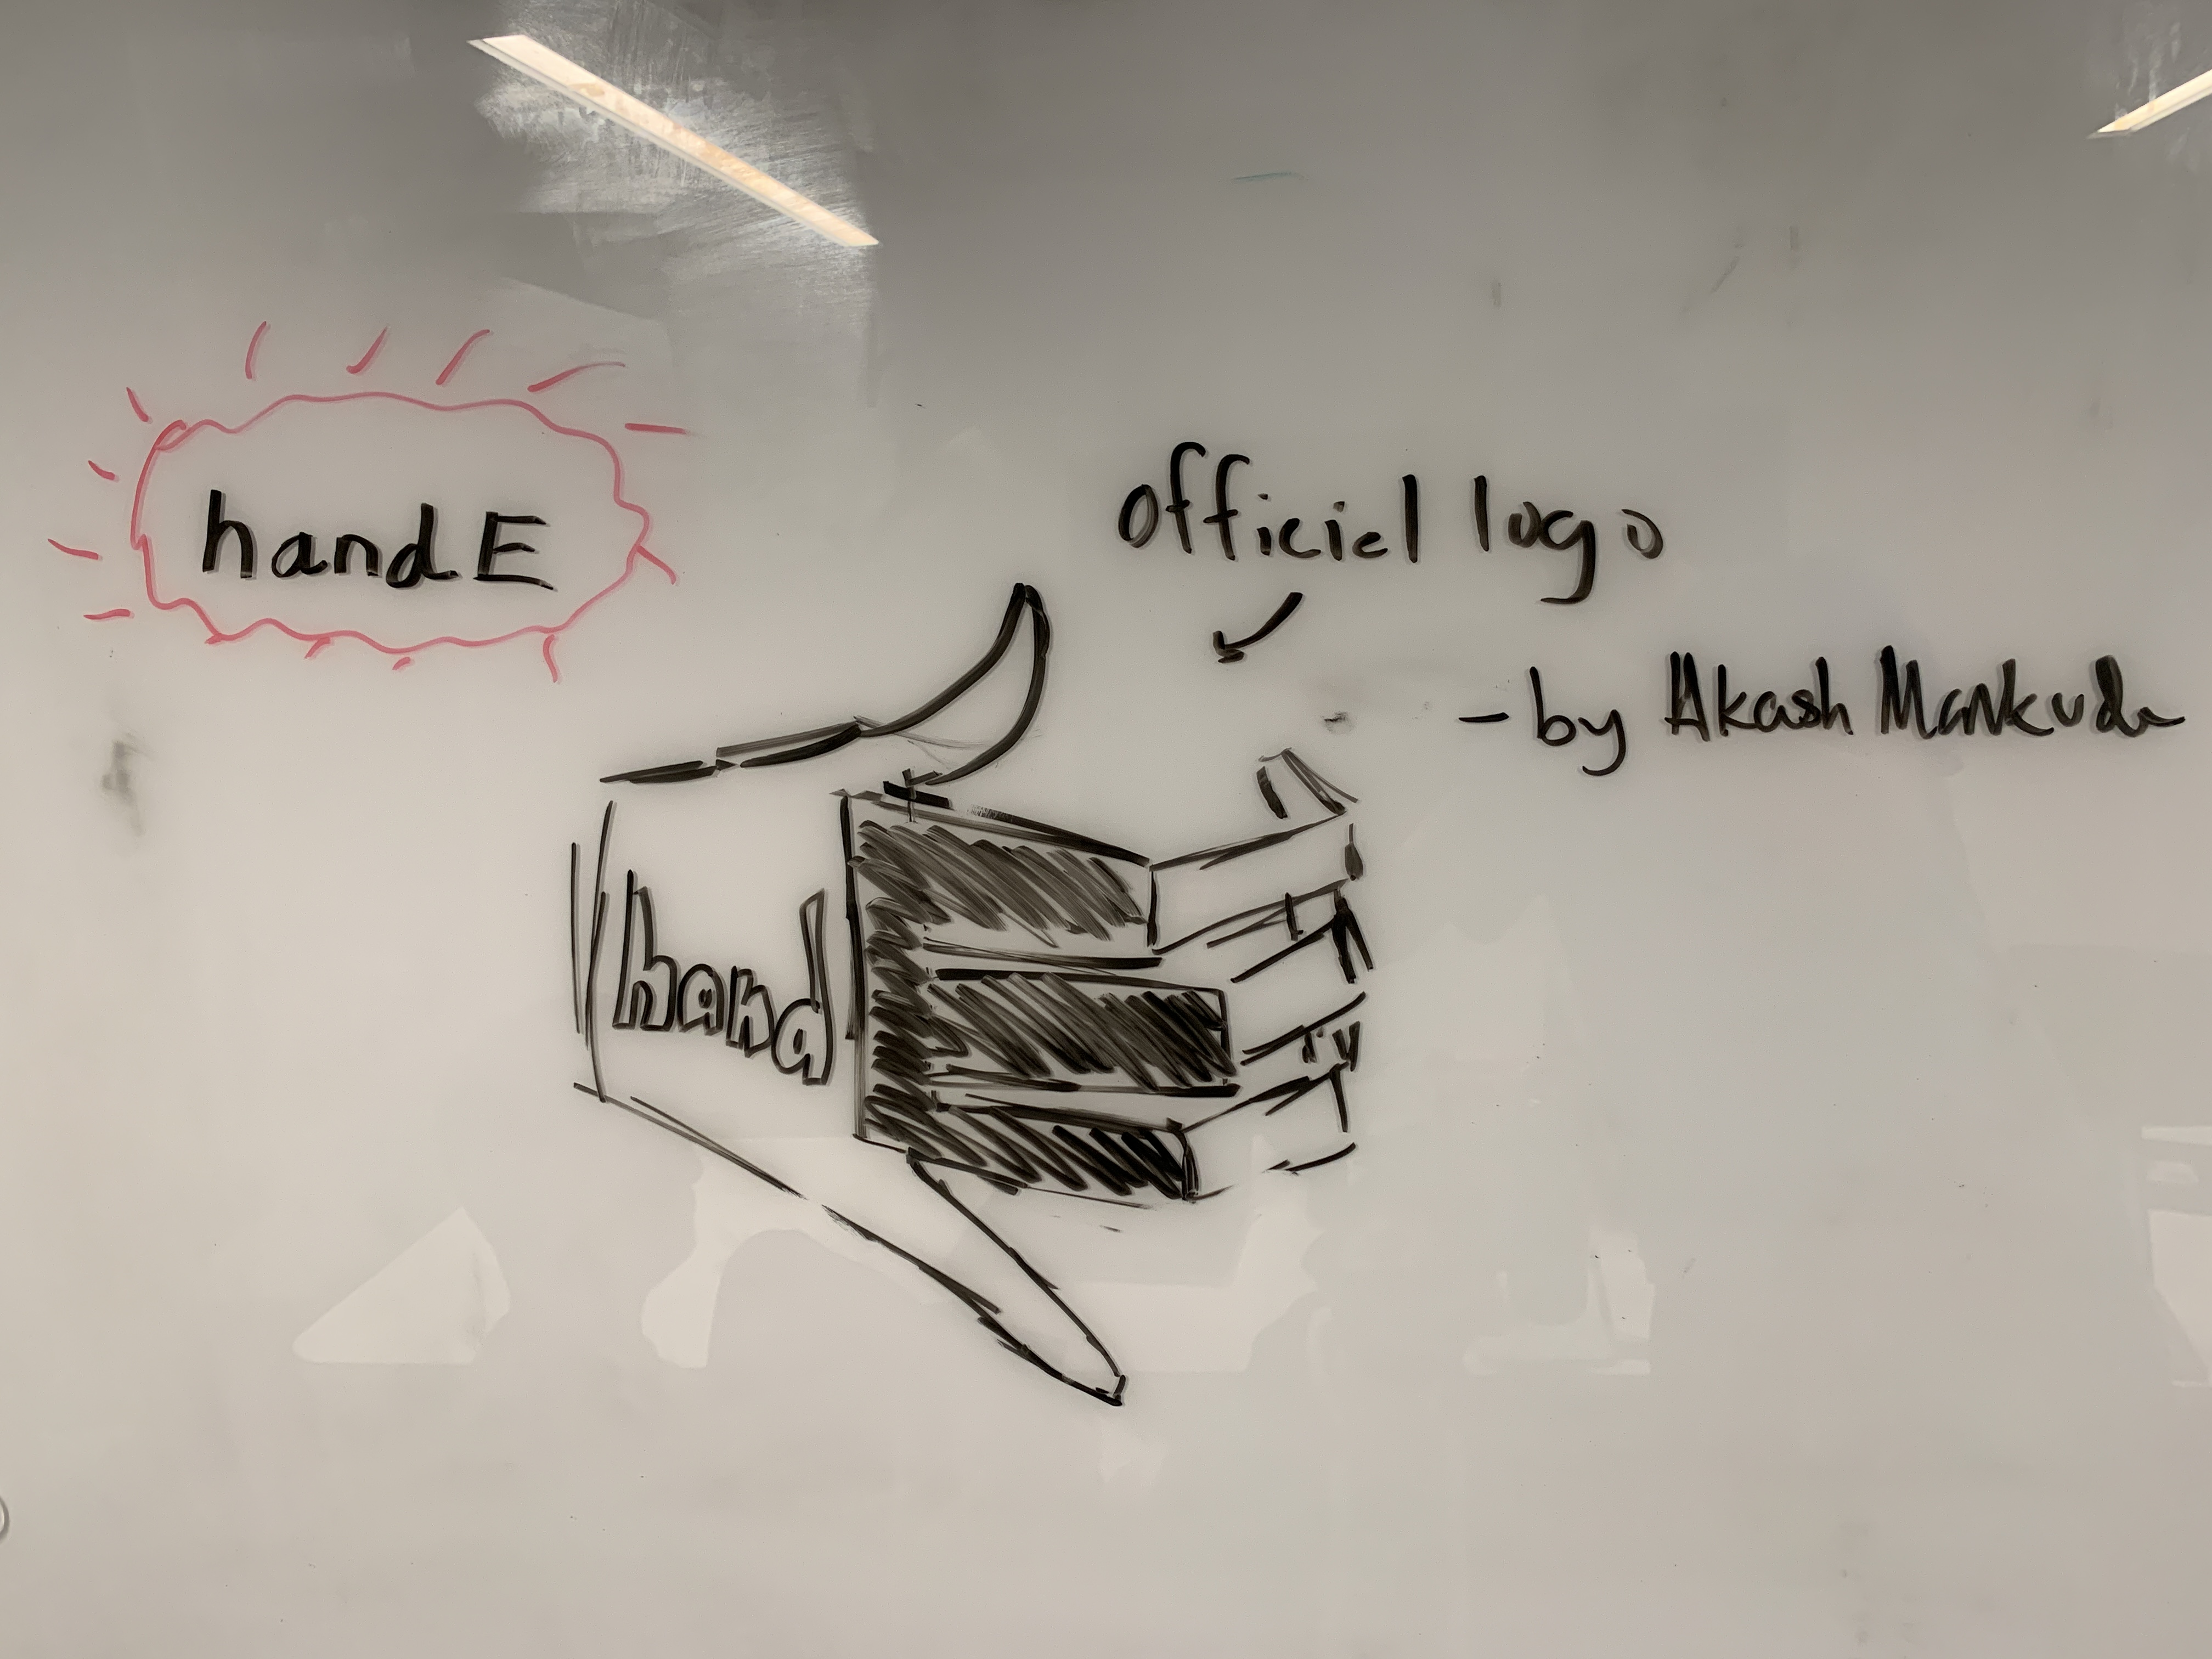 handE
official logo
- by Akash Mankude
hand